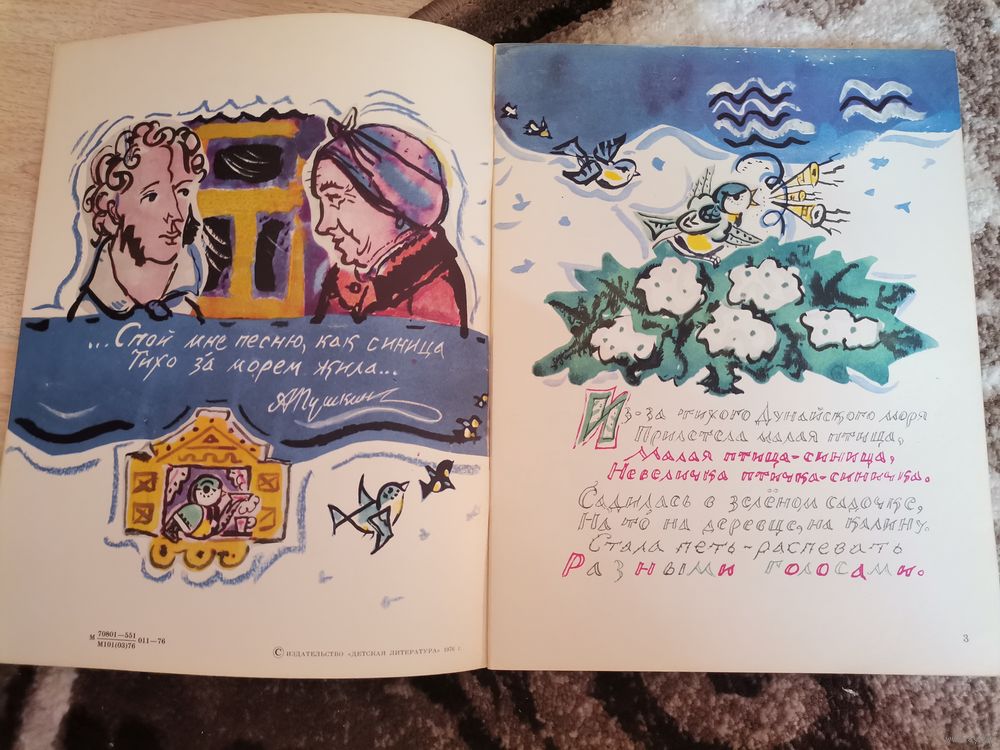 ...Спой мне песню, как синица
Тихо за морем жила...
А Пушкин
М 70801—551 011—76
М101(03)76
© ИЗДАТЕЛЬСТВО «ДЕТСКАЯ ЛИТЕРАТУРА» 1976 г.
Из-за тихого Дунайского моря
Прилетела малая птица,
Малая птица-синица,
Невеличка птичка-синичка.
Садилась в зелёном садочке,
На то на деревце, на калину.
Стала петь-распевать
Разными голосами.
3